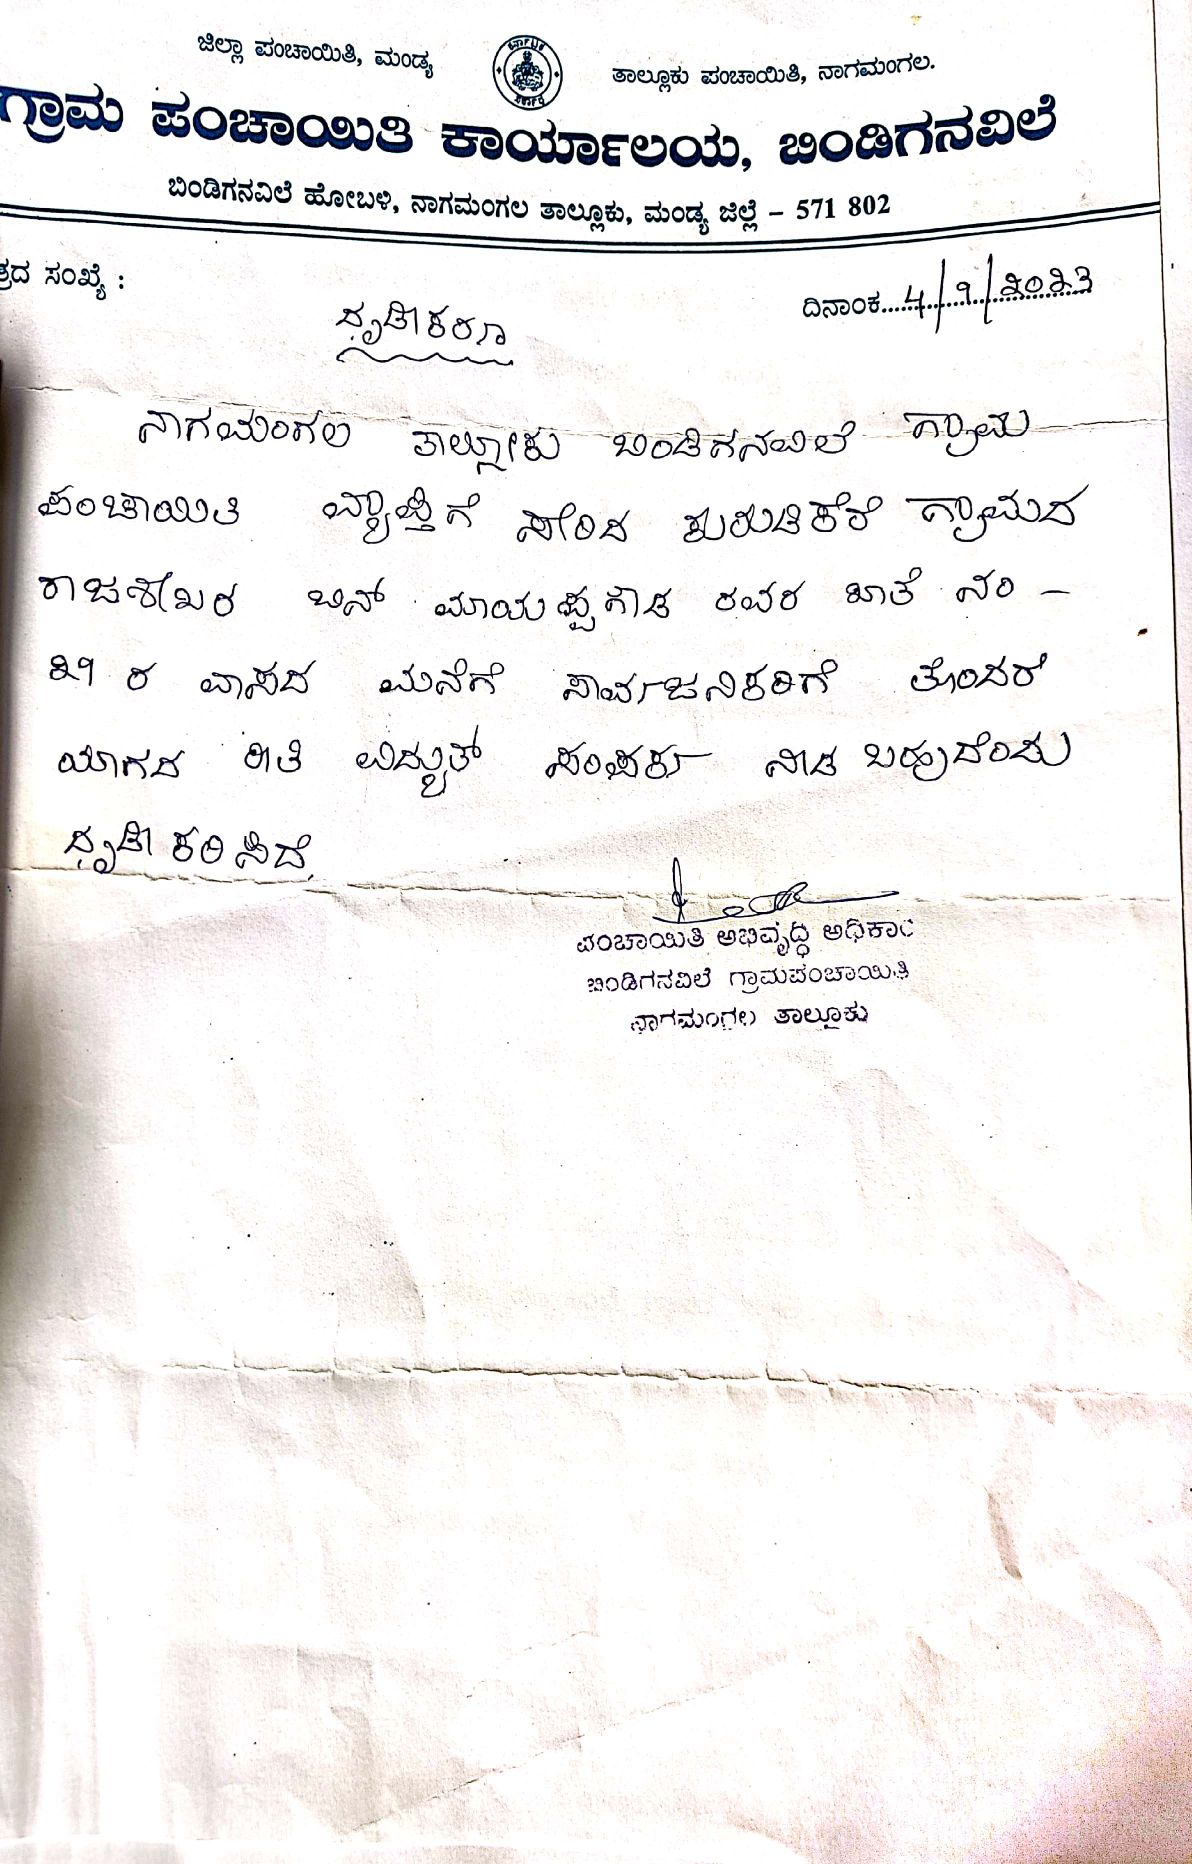 ಜಿಲ್ಲಾ ಪಂಚಾಯಿತಿ, ಮಂಡ್ಯ ತಾಲ್ಲೂಕು ಪಂಚಾಯಿತಿ, ನಾಗಮಂಗಲ.
ಗ್ರಾಮ ಪಂಚಾಯಿತಿ ಕಾರ್ಯಾಲಯ, ಬಿಂಡಿಗನವಿಲೆ
ಬಿಂಡಿಗನವಿಲೆ ಹೋಬಳಿ, ನಾಗಮಂಗಲ ತಾಲ್ಲೂಕು, ಮಂಡ್ಯ ಜಿಲ್ಲೆ – 571 802
ಸಂಖ್ಯೆ : ದಿನಾಂಕ....4/9/೨೦೨೩
ಧೃಡೀಕರಣ
ನಾಗಮಂಗಲ ತಾಲ್ಲೋಕು ಬಿಂಡಿಗನವಿಲೆ ಗ್ರಾಮ
ಪಂಚಾಯಿತಿ ವ್ಯಾಪ್ತಿಗೆ ಸೇರಿದ ಗ್ರಾಮದ
ರಾಜಶೇಖರ ಬಿನ್ ಮಾಯಪ್ಪಗೌಡ ರವರ ಖಾತೆ ನಂ –
೨೧ ರ ವಾಸದ ಮನೆಗೆ ಸಾರ್ವಜನಿಕರಿಗೆ ತೊಂದರೆ
ಯಾಗದ ರೀತಿ ವಿದ್ಯುತ್ ಸಂಪರ್ಕ ನೀಡ ಬಹುದೆಂದು
ಧೃಡೀಕರಿಸಿದೆ
ಪಂಚಾಯಿತಿ ಅಭಿವೃದ್ಧಿ ಅಧಿಕಾರಿ
ಬಿಂಡಿಗನವಿಲೆ ಗ್ರಾಮಪಂಚಾಯಿತಿ
ನಾಗಮಂಗಲ ತಾಲ್ಲೂಕು